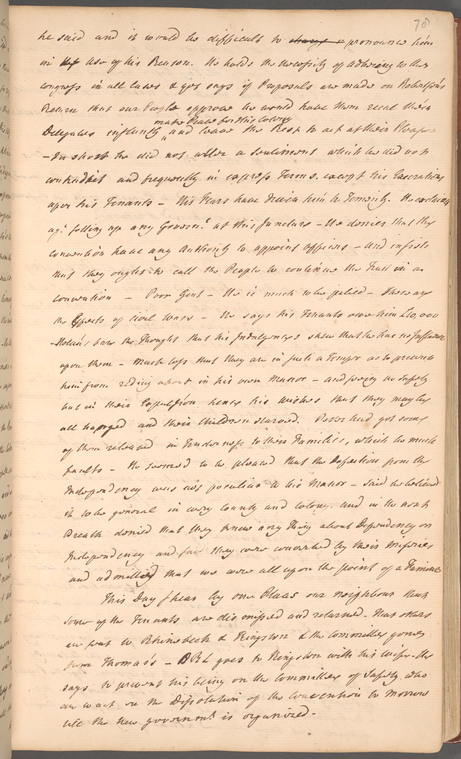 78
he said and it would be difficult to pronounce him
in Use of his Reason. He holds the Necessity of adhering to the
congress in all Cases & yet says if Proposals are made on Robertson's
Return that our People approve he would have them recal their
make Peace for this Colony
Delegates instantly and leave the Rest to act at their Pleasure
- In short he did not utter a Sentiment which he did not
contradict and frequently in express Terms. except his Execrations
upon his Tenants - His Fears have driven him to Temerity. He exclaims
agt. setting up any Governmt. at this Juncture - He denies that the
convention have any Authority to appoint officers - and insists
that they ought to call the People to continue the Trust in a
convention - Poor Gent - He is much to be pitied - These are
the Effects of civil Wars - He says his Tenants owe him £10,000
the Thought that his Indulgences shew that he has no Influence
upon them - Much less that they are in such a Temper as to prevent
him from riding about in his own Manor - and seeing no safety
but in their hence his Wishes that they may be
all hanged and their Children starved. Peter had got some
of them released in Tenderness to their Families, which he much
faults - He seemed to be pleased that the Defection from the
Independency was not peculiar to his Manor - said he believed
it to be general in every County and Colony. and in the next
Breath denied that they knew any Thing about Dependency or
Independency and said they were actuated by their Miseries
and admitted that we were all upon the point of a Famine
This Day I hear by one our Neighbour that
some of the Tenants are dismissed and returned. that others
are sent to Rhinebeck & Kingston & the Committee gone
from Thomas's - RRL goes to Kingston with his wife. He
says to prevent his being on the Committee of Safety who
are to act on the Dissolution of the Convention to Morrow
till the new governmt. is organized.-